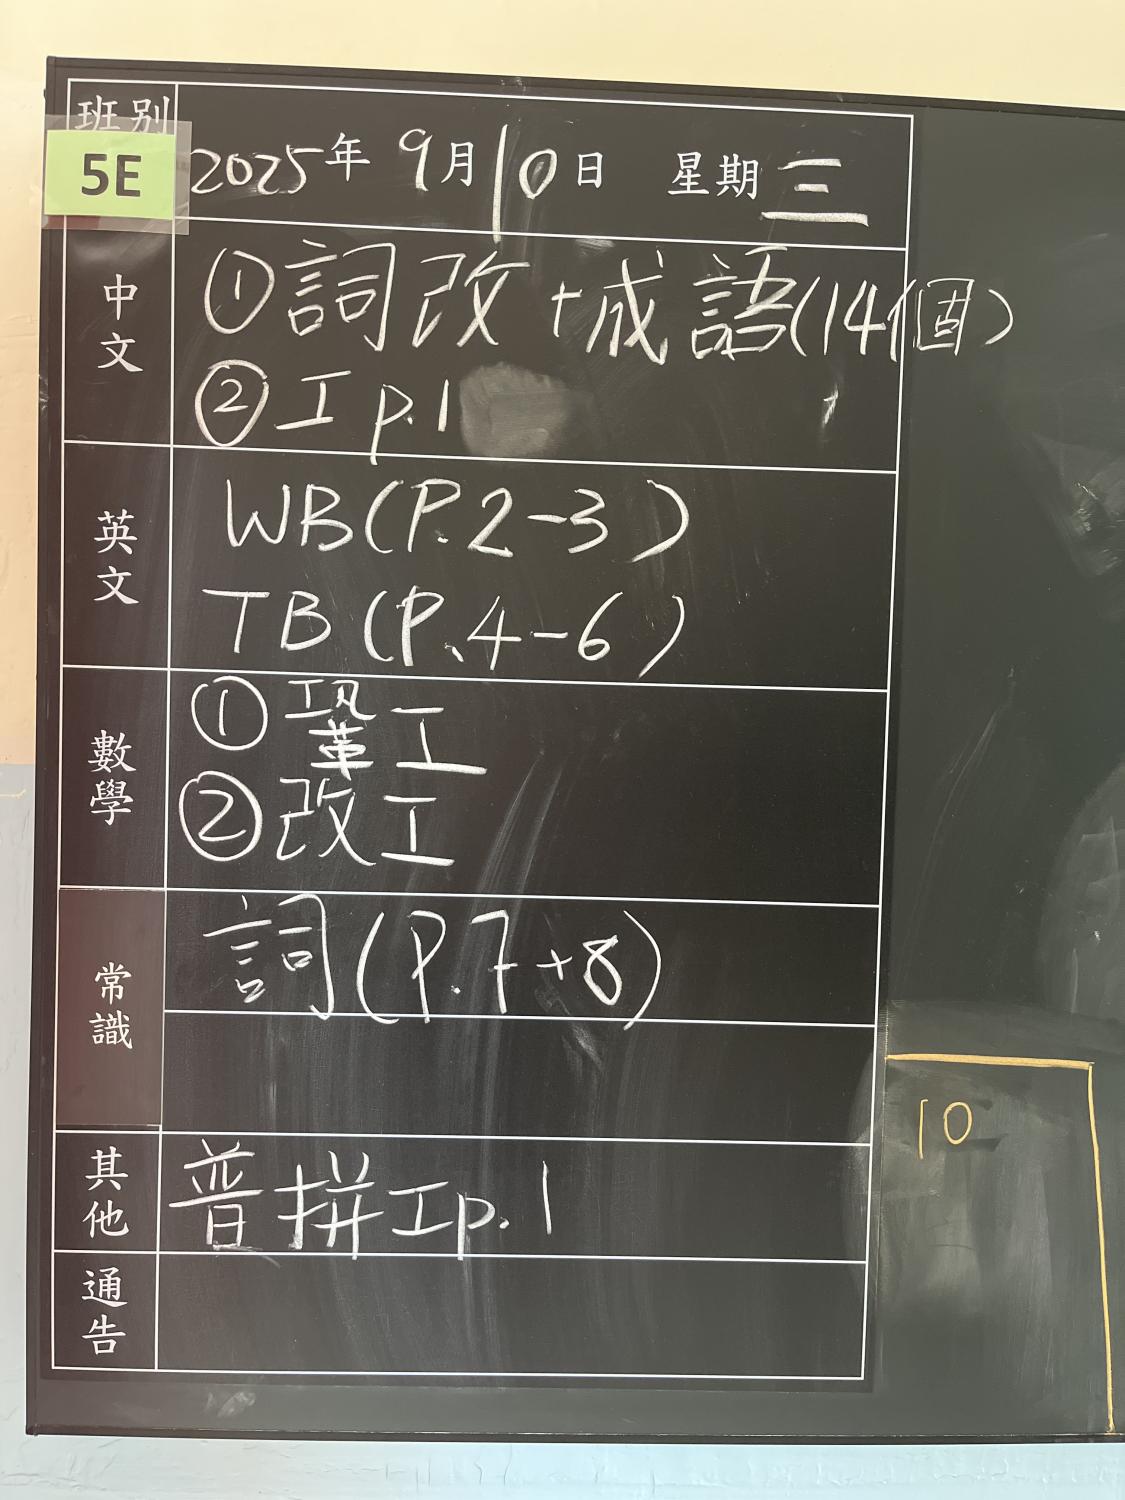 班別
5E
2025年 9月10日 星期三
中文
①詞改+成語(14個)
②工p.1
英文
WB(P.2-3)
TB(P.4-6)
數學
①鞏工
②改工
常識
詞(P.7+8)
10
其他
普拼工p.1
通告